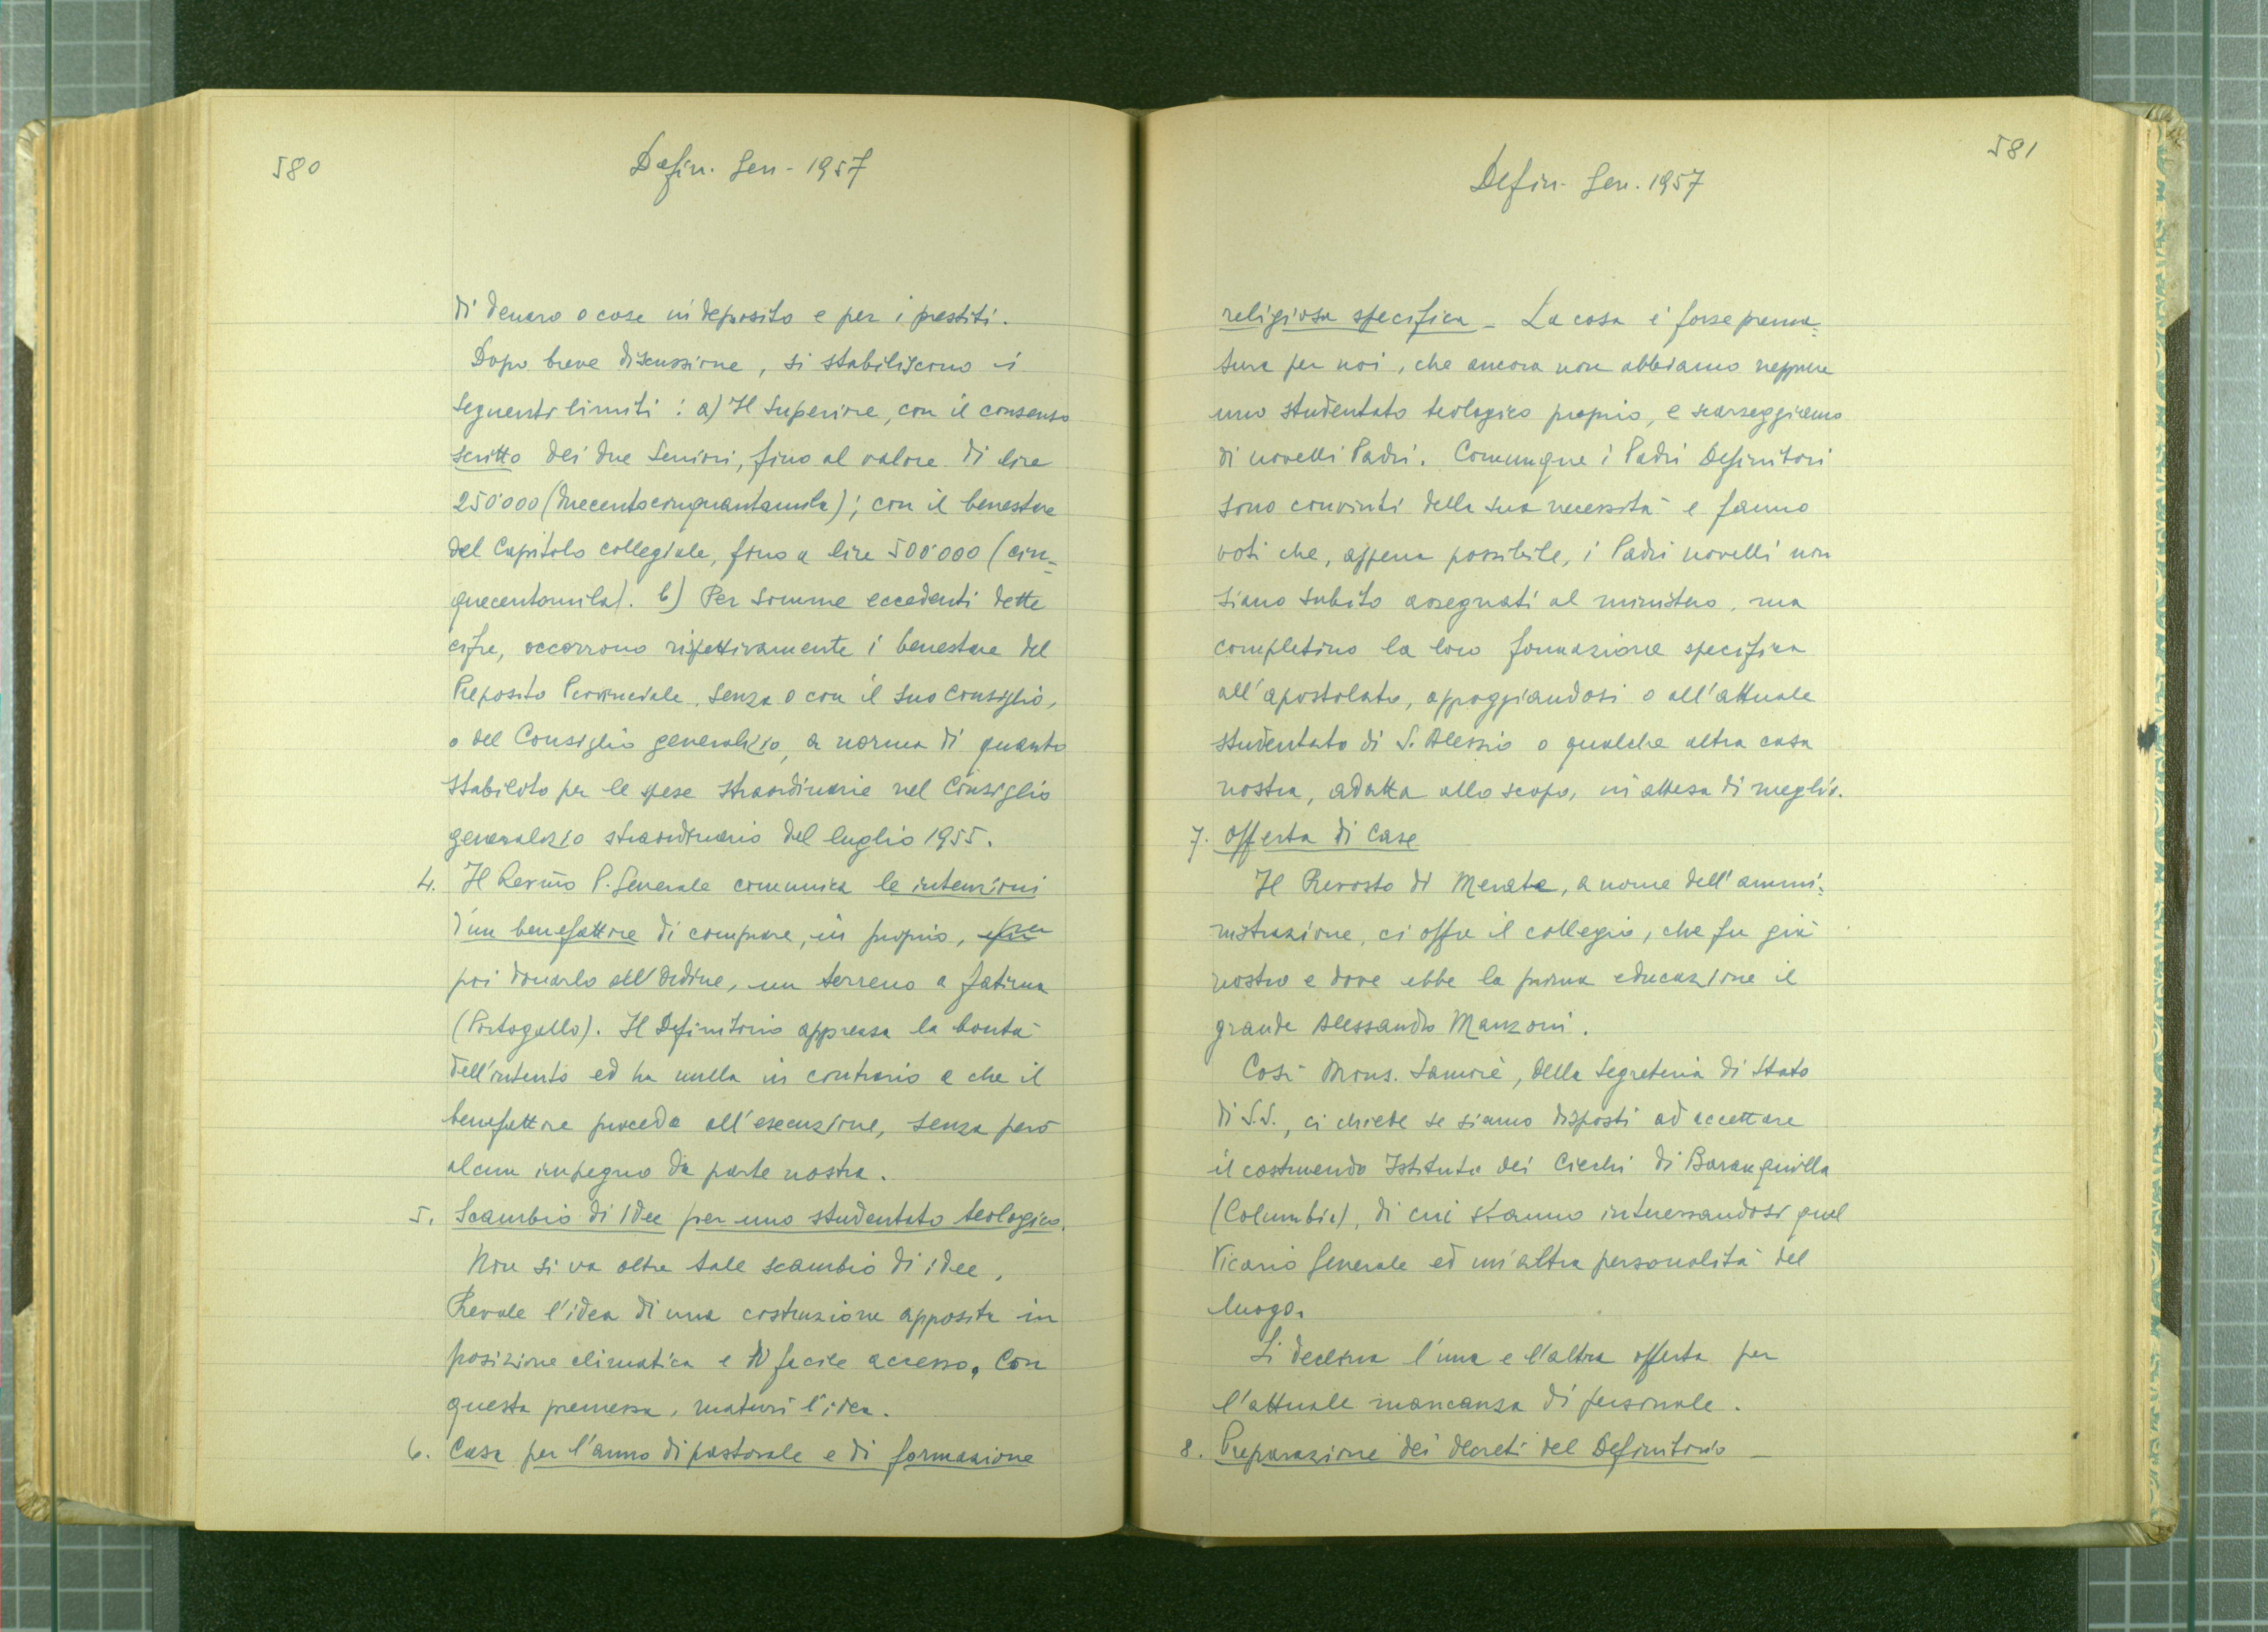 580
Defin. Gen - 1957
di denaro o cose in deposito e per i prestiti.
Dopo breve discussione, si stabiliscono i
seguenti limiti : a) Il Superiore, con il consenso
scritto dei due Seniori, fino al valore di lire
250'000 (duecentocinquantamila); con il benestare
del Capitolo collegiale, fino a lire 500'000 (cin=
quecentomila). b) Per somme eccedenti dette
cifre, occorrono rispettivamente i benestare del
Preposito Provinciale, senza o con il suo Consiglio,
o del Consiglio generalizio, a norma di quanto
stabilito per le spese straordinarie nel Consiglio
generalizio straordinario del luglio 1955.
4. Il Rev.mo P. Generale comunica le intenzioni
d'un benefattore di comprare, in proprio, per
poi donarlo all'Ordine, un terreno a Fatima
(Portogallo). Il Definitorio apprezza la bontà
dell'intento ed ha nulla in contrario a che il
benefattore proceda all'esecuzione, senza però
alcun impegno da parte nostra.
5. Scambio di idee per uno studentato teologico.
Non si va oltre tale scambio di idee,
Prevale l'idea di una costruzione apposita in
posizione climatica e di facile accesso. Con
questa premessa, maturi l'idea.
6. Casa per l'anno di pastorale e di formazione
581
Defin. Gen. 1957
religiosa specifica - La cosa è forse prema=
tura per noi, che ancora non abbiamo neppure
uno studentato teologico proprio, e scarseggiamo
di novelli Padri. Comunque i Padri Definitori
sono convinti della sua necessità e fanno
voti che, appena possibile, i Padri novelli non
siano subito assegnati al ministero, ma
completino la loro formazione specifica
all'apostolato, appoggiandosi o all'attuale
studentato di S. Alessio o qualche altra casa
nostra, adatta allo scopo, in attesa di meglio.
7. Offerta di Case
Il Prevosto di Merate, a nome dell'ammi=
nistrazione, ci offre il collegio, che fu già
nostro e dove ebbe la prima educazione il
grande Alessandro Manzoni.
Così Mons. Samorè, della Segreteria di Stato
di S.S., ci chiede se siamo disposti ad accettare
il costruendo Istituto dei Ciechi di Baranquilla
(Columbia), di cui stanno interessandosi quel
Vicario Generale ed un'altra personalità del
luogo.
Si declina l'una e l'altra offerta per
l'attuale mancanza di personale.
8. Preparazione dei decreti del Definitorio -